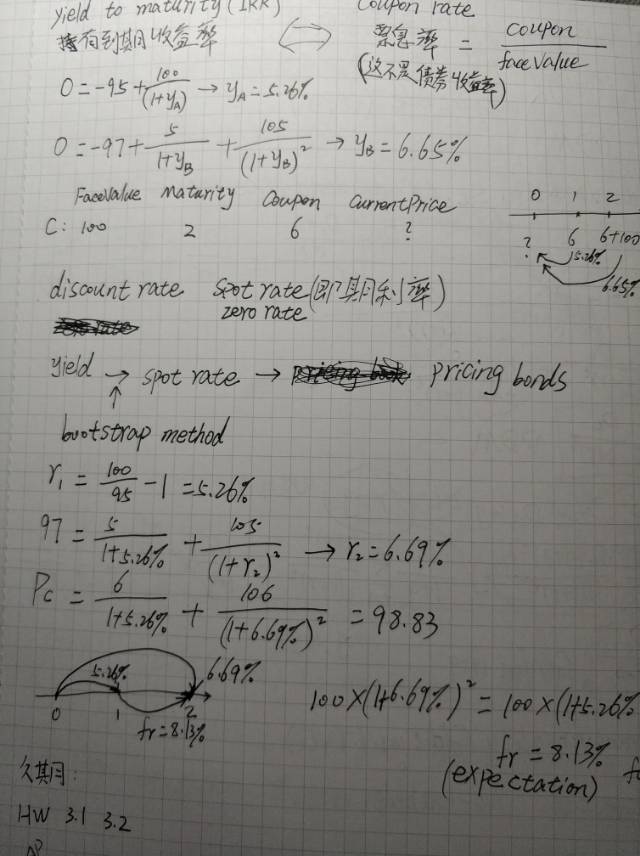 yield to maturity (IRR) Coupon rate
持有到期收益率 ⟺ 票息率 = Coupon / faceValue
(这不是债券收益率)
0 = -95 + 100/(1+yA) → yA = 5.26%
0 = -97 + 5/(1+yB) + 105/(1+yB)² → yB = 6.65%
FaceValue Maturity Coupon CurrentPrice
C: 100 2 6 ?
0 1 2
? 6 6+100
5.26%
6.65%
discount rate spot rate (即期利率)
zero rate
yield → spot rate → pricing bonds
↑
bootstrap method
r₁ = 100/95 - 1 = 5.26%
97 = 5/(1+5.26%) + 105/(1+r₂)² → r₂ = 6.69%
Pc = 6/(1+5.26%) + 106/(1+6.69%)² = 98.83
5.26% 6.69%
0 1 2
fr = 8.13%
100×(1+6.69%)² = 100×(1+5.26%
fr = 8.13%
(expectation)
久期:
HW 3.1 3.2